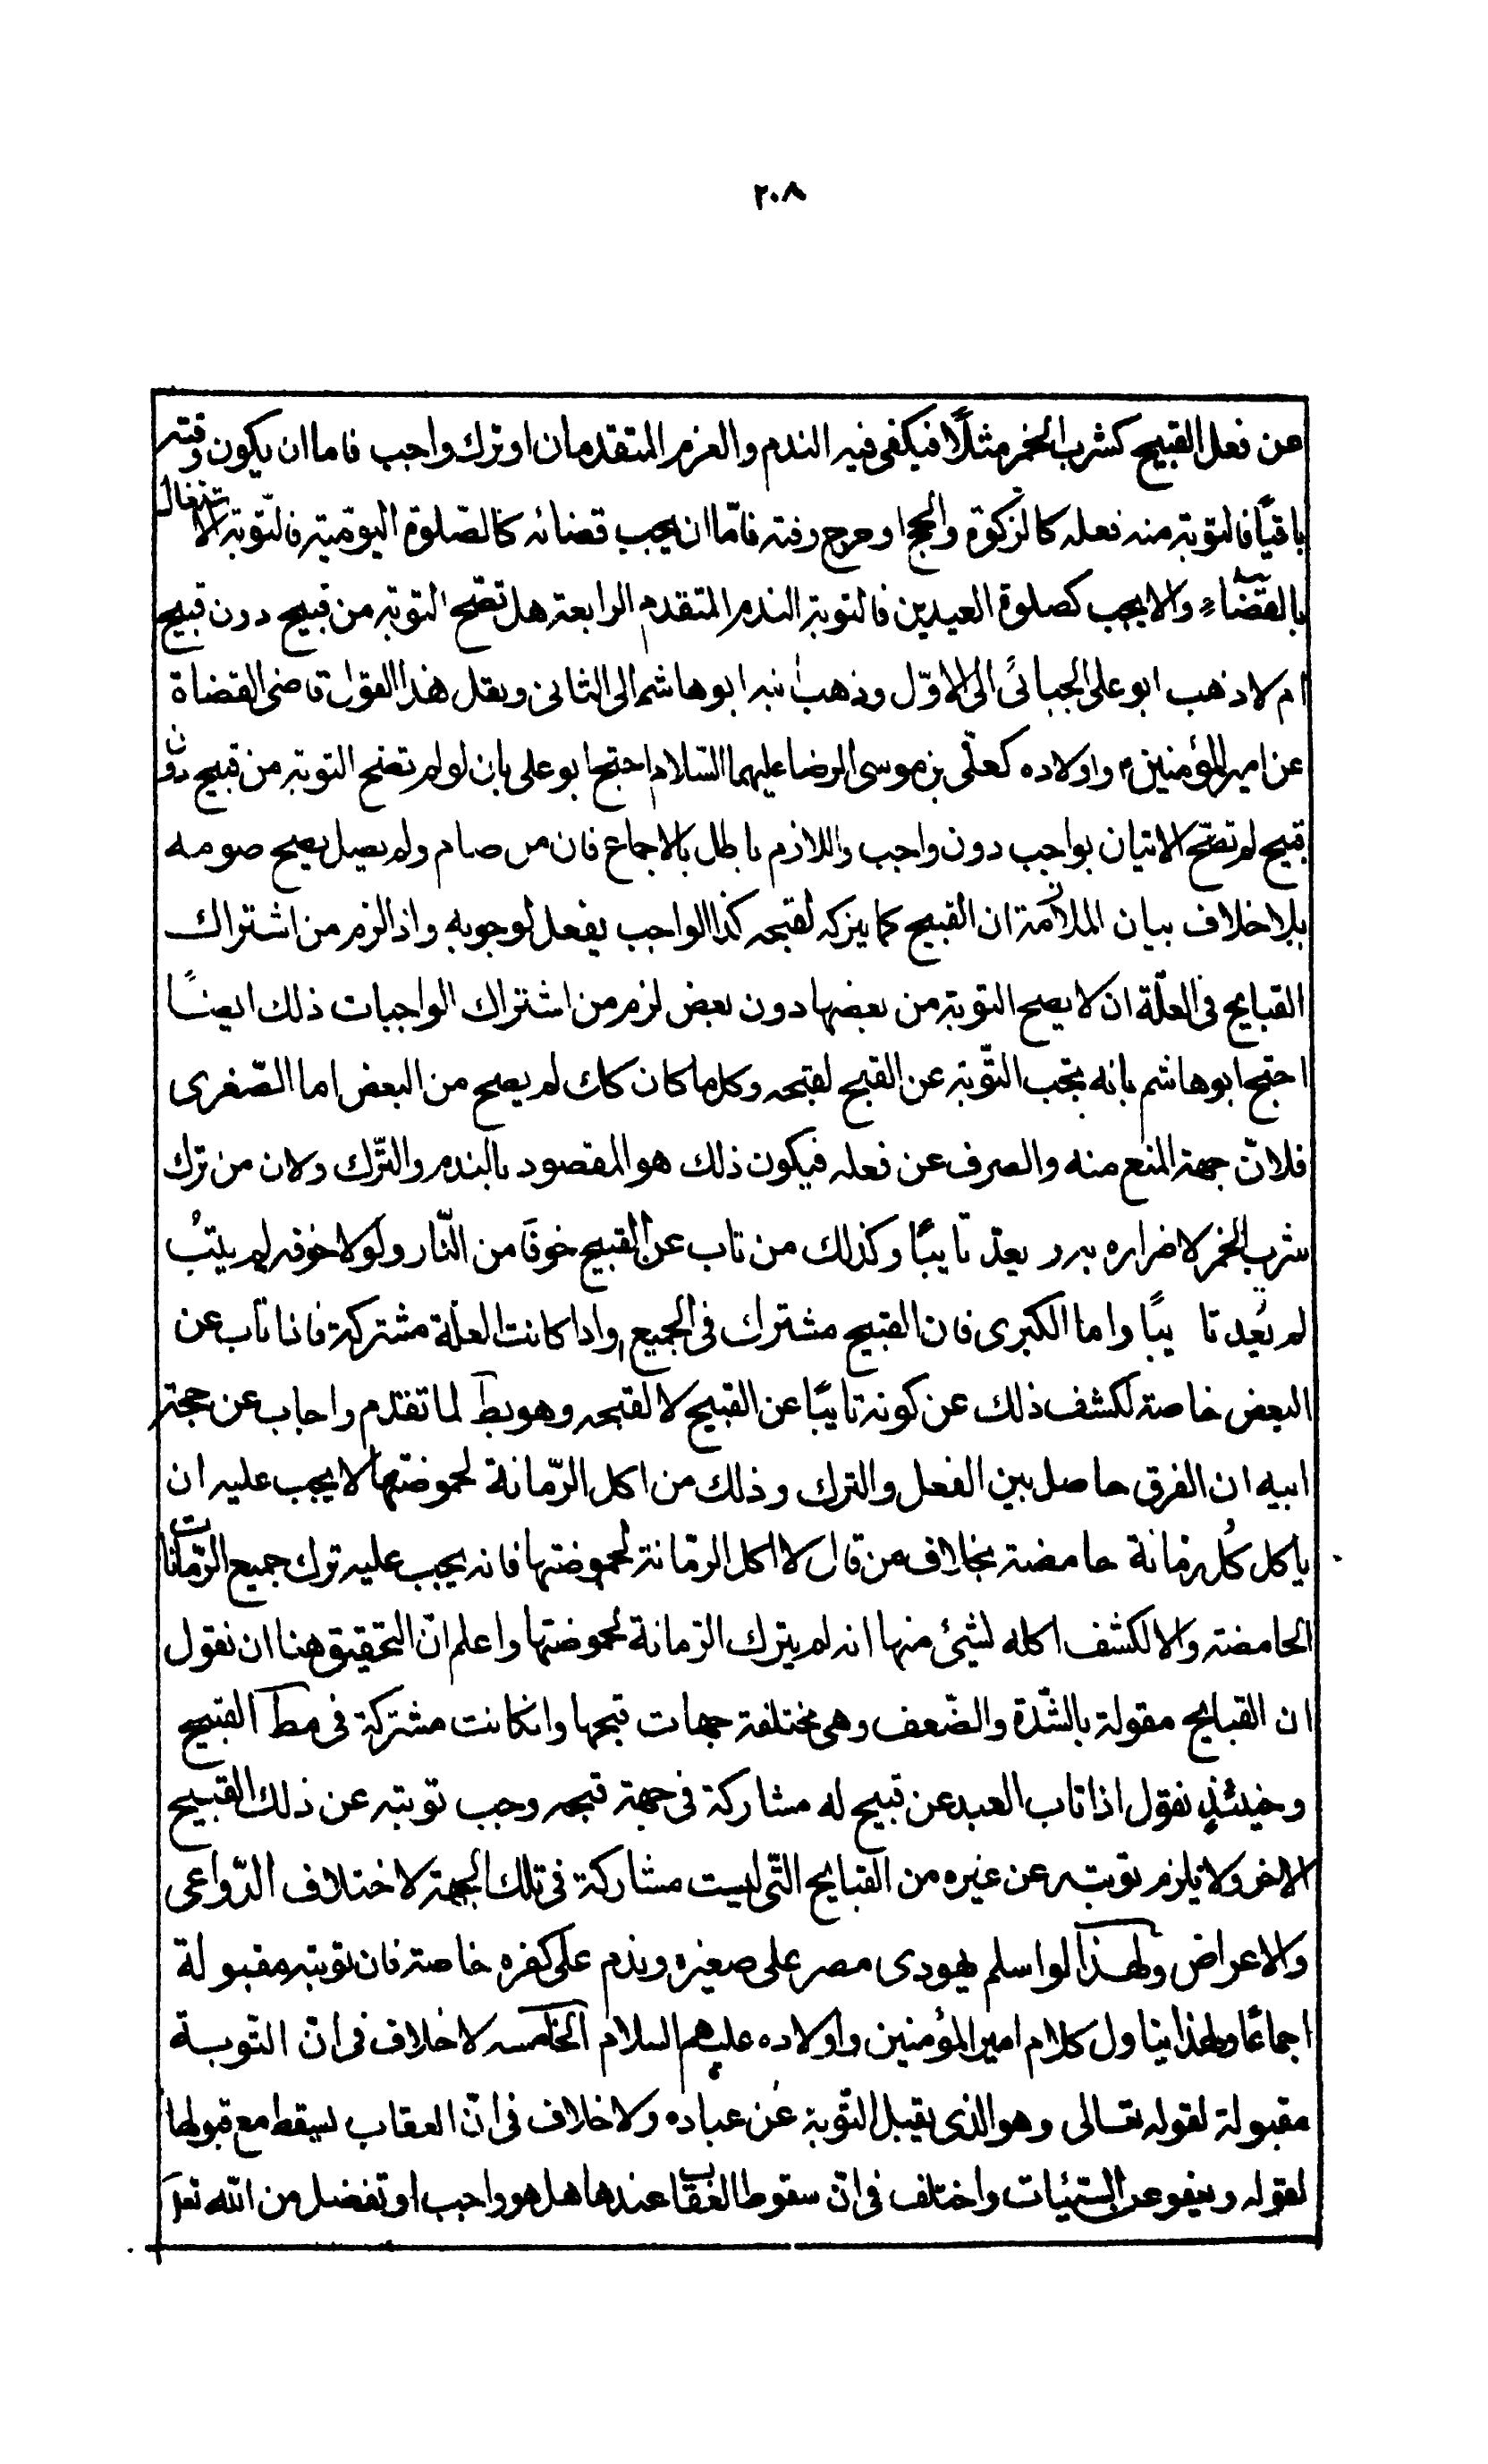 ٢٠٨
عن فعل القبيح كشرب الخمر مثلًا فيكفى فيه الندم والعزم المتقدمان او ترك واجب فاما ان يكون وقته
باقيًا فالتوبة منه فعله كالزكوة والحج او خرج وقته فامّا ان يجب قضائه كالصّلوة اليوميّة فالتّوبة الاشتغال
بالقضاء او لا يجب كصلوة العيدين فالتوبة الندم المتقدم الرابعة هل تصّح التوبة من قبيح دون قبيح
ام لا ذهب ابو على الجبائى الى الاوّل وذهب ابنه ابو هاشم الى الثانى ونقل هذا القول قاضى القضاة
عن امير المؤمنين ع واولاده كعلى بن موسى الرضا عليهما السّلام احتج ابو على بان لو لم تصح التوبة من قبيح دون
قبيح لم تصّح الاتيان بواجب دون واجب واللازم باطل بالاجماع فان من صام ولم يصل يصح صومه
بلا خلاف بيان الملازمة ان القبيح كما يترك لقبحه كذا الواجب يفعل لوجوبه واذا لزم من اشتراك
القبايح فى العلّة ان لا يصح التوبة من بعضها دون بعض لزم من اشتراك الواجبات ذلك ايضًا
احتج ابو هاشم بانه يجب التّوبة عن القبح لقبحه وكل ما كان كك لم يصح من البعض اما الصّغرى
فلانّ جهة المنع منه والصرف عن فعله فيكون ذلك هو المقصود بالندم والتّرك ولان من ترك
شرب الخمر لاضراره ببدنه لم يعدّ تايبًا وكذلك من تاب عن القبيح خوفًا من النّار ولولا خوفه لم يتُب
لم يُعد تا يبًا واما الكبرى فان القبيح مشترك فى الجميع واذا كانت العلّة مشتركة فاذا تاب عن
البعض خاصة لكشف ذلك عن كونه تايبًا عن القبيح لا لقبحه وهو بط لما تقدّم واجاب عن حجة
ابيه ان الفرق حاصل بين الفعل والترك وذلك من اكل الرّمانة لحموضتها لا يجب عليه ان
ياكل كُل رمانة حامضة بخلاف من قال لا اكل الرمّانة لحموضتها فانه يجب عليه ترك جميع الرّمانات
الحامضة والا لكشف اكله لشئ منها انه لم يترك الرّمانة لحموضتها واعلم انّ التحقيق هنا ان نقول
ان القبايح مقولة بالشّدة والضّعف وهى مختلفة جهات قبحها وانكانت مشتركة فى مط القبيح
وحينئذٍ نقول اذا تاب العبد عن قبيح له مشاركة فى جهة قبحه وجب توبته عن ذلك القبيح
الاخر ولا يلزم توبته عن غيره من القبايح التّى ليست مشاركة فى تلك الجهة لاختلاف الدّواعى
والاعراض ولهذا لو اسلم يهودى مصر على صغيره وندم على كفره خاصة فان توبته مقبولة
اجماعًا ولهذا يتاول كلام امير المؤمنين واولاده عليهم السلام الخامسه لا خلاف فى انّ التوبة
مقبولة لقوله تعالى وهو الذى يقبل التّوبة عن عباده ولا خلاف فى انّ العقاب يسقط مع قبولها
لقوله ويعفو عن السّيئات واختلف فى انّ سقوط العقاب عندها هل هو واجب او تفضل من الله تعا